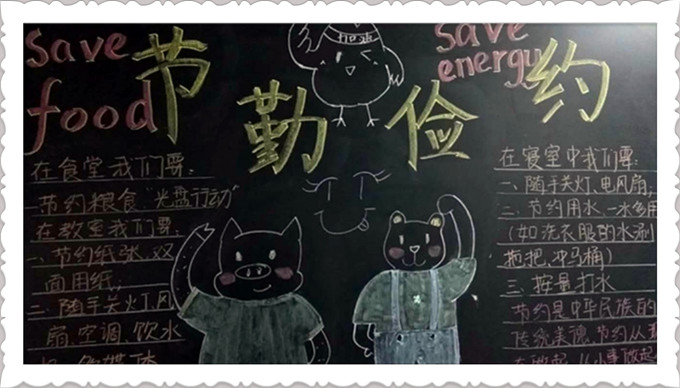 save
food
save
energy
节勤俭约
加油
在食堂我们要:
节约粮食“光盘行动”
在教室我们要:
一、节约纸张、双
面用纸。
二、随手关灯、风
扇、空调、饮水
机、多媒体
在寝室中我们要:
一、随手关灯、电风扇,
二、节约用水、一水多用
(如洗衣服的水刷
拖把、冲马桶)
三、按量打水
节约是中华民族的
传统美德,节约从
做起,从小事做起